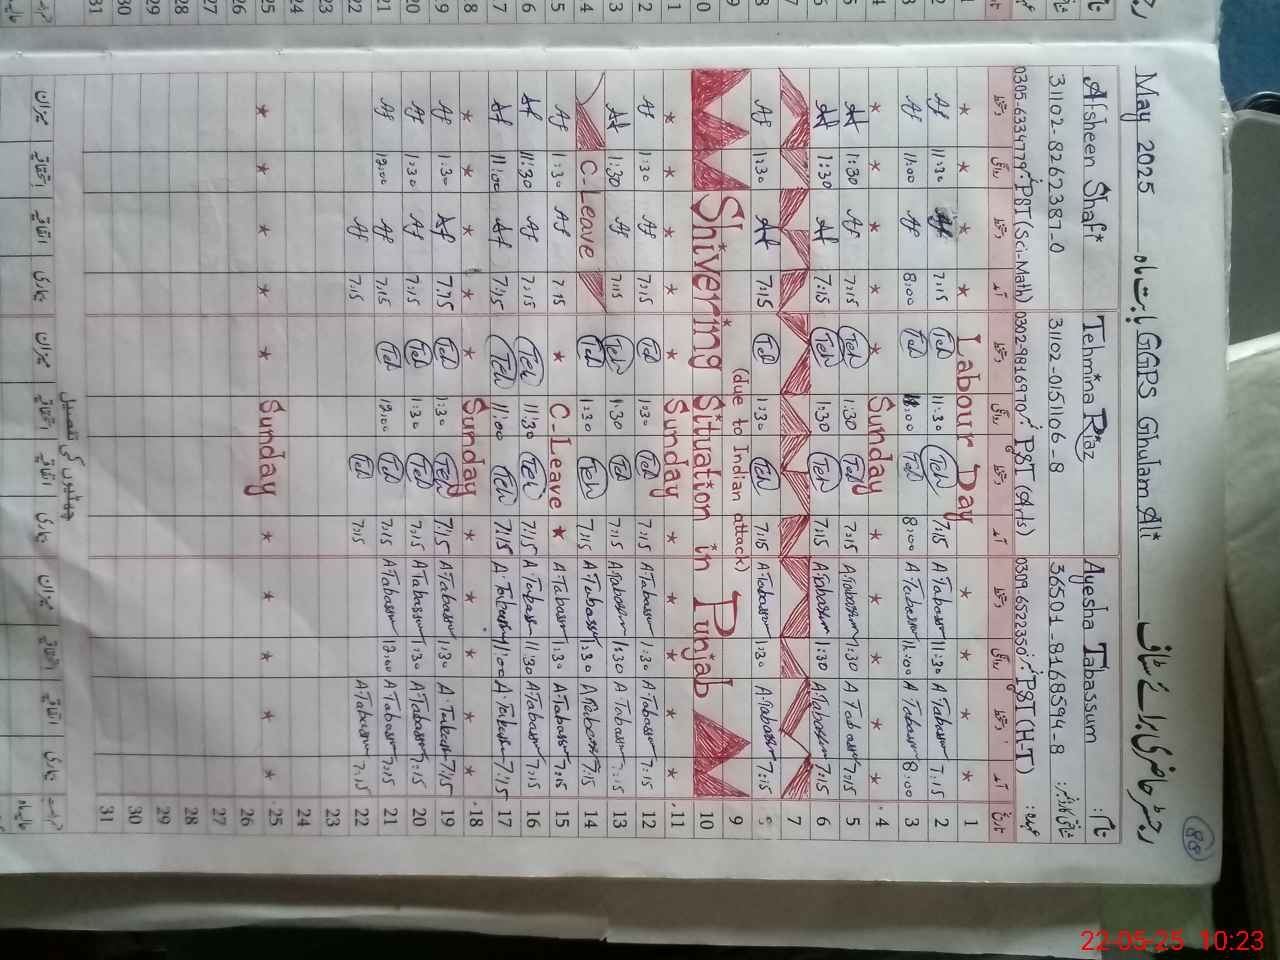 May 2025 بابت ماہ GGPS Ghulam Ali رجسٹر حاضری برائے سٹاف
88
Afsheen Shafi Tehmina Riaz Ayesha Tabassum نام:
31102-8262387-0 31102-0151106-8 36501-8168594-8 شناختی کارڈ نمبر:
0305-6334779 PST (Sci-Math) 0302-9816970 PST (Arts) 0309-6522350 PST (H-T) عہدہ:
دستخط روانگی دستخط آمد دستخط روانگی دستخط آمد دستخط روانگی دستخط آمد تاریخ
* * * * Labour Day * * * * 1
Af 11:30 Af 7:15 Teh 11:30 Teh 7:15 A.Tabassum 11:30 A.Tabassum 7:15 2
Af 11:00 Af 8:00 Teh 11:00 Teh 8:00 A.Tabassum 11:00 A.Tabassum 8:00 3
* * * * * Sunday * * * * * 4
Af 1:30 Af 7:15 Teh 1:30 Teh 7:15 A.Tabassum 1:30 A.Tabassum 7:15 5
Af 1:30 Af 7:15 Teh 1:30 Teh 7:15 A.Tabassum 1:30 A.Tabassum 7:15 6
7
Af 1:30 Af 7:15 Teh 1:30 Teh 7:15 A.Tabassum 1:30 A.Tabassum 7:15 8
(due to Indian attack) 9
Shivering Situation in Punjab 10
* * * * * Sunday * * * * * 11
Af 1:30 Af 7:15 Teh 1:30 Teh 7:15 A.Tabassum 1:30 A.Tabassum 7:15 12
Af 1:30 Af 7:15 Teh 1:30 Teh 7:15 A.Tabassum 1:30 A.Tabassum 7:15 13
C-Leave Teh 1:30 Teh 7:15 A.Tabassum 1:30 A.Tabassum 7:15 14
Af 1:30 Af 7:15 * C-Leave * A.Tabassum 1:30 A.Tabassum 7:15 15
Af 11:30 Af 7:15 Teh 11:30 Teh 7:15 A.Tabassum 11:30 A.Tabassum 7:15 16
Af 11:00 Af 7:15 Teh 11:00 Teh 7:15 A.Tabassum 11:00 A.Tabassum 7:15 17
* * * * * Sunday * * * * * 18
Af 1:30 Af 7:15 Teh 1:30 Teh 7:15 A.Tabassum 1:30 A.Tabassum 7:15 19
Af 1:30 Af 7:15 Teh 1:30 Teh 7:15 A.Tabassum 1:30 A.Tabassum 7:15 20
Af 12:00 Af 7:15 Teh 12:00 Teh 7:15 A.Tabassum 12:00 A.Tabassum 7:15 21
Af 7:15 Teh 7:15 A.Tabassum 7:15 22
23
24
* * * * * Sunday * * * * * 25
26
27
28
29
30
31
میزان اتفاقیہ میزان اتفاقیہ میزان اتفاقیہ
22-05-25 10:23